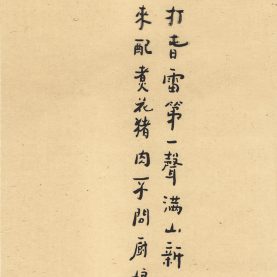 打春雷第一聲滿山新
來配煮花猪肉不問厨娘